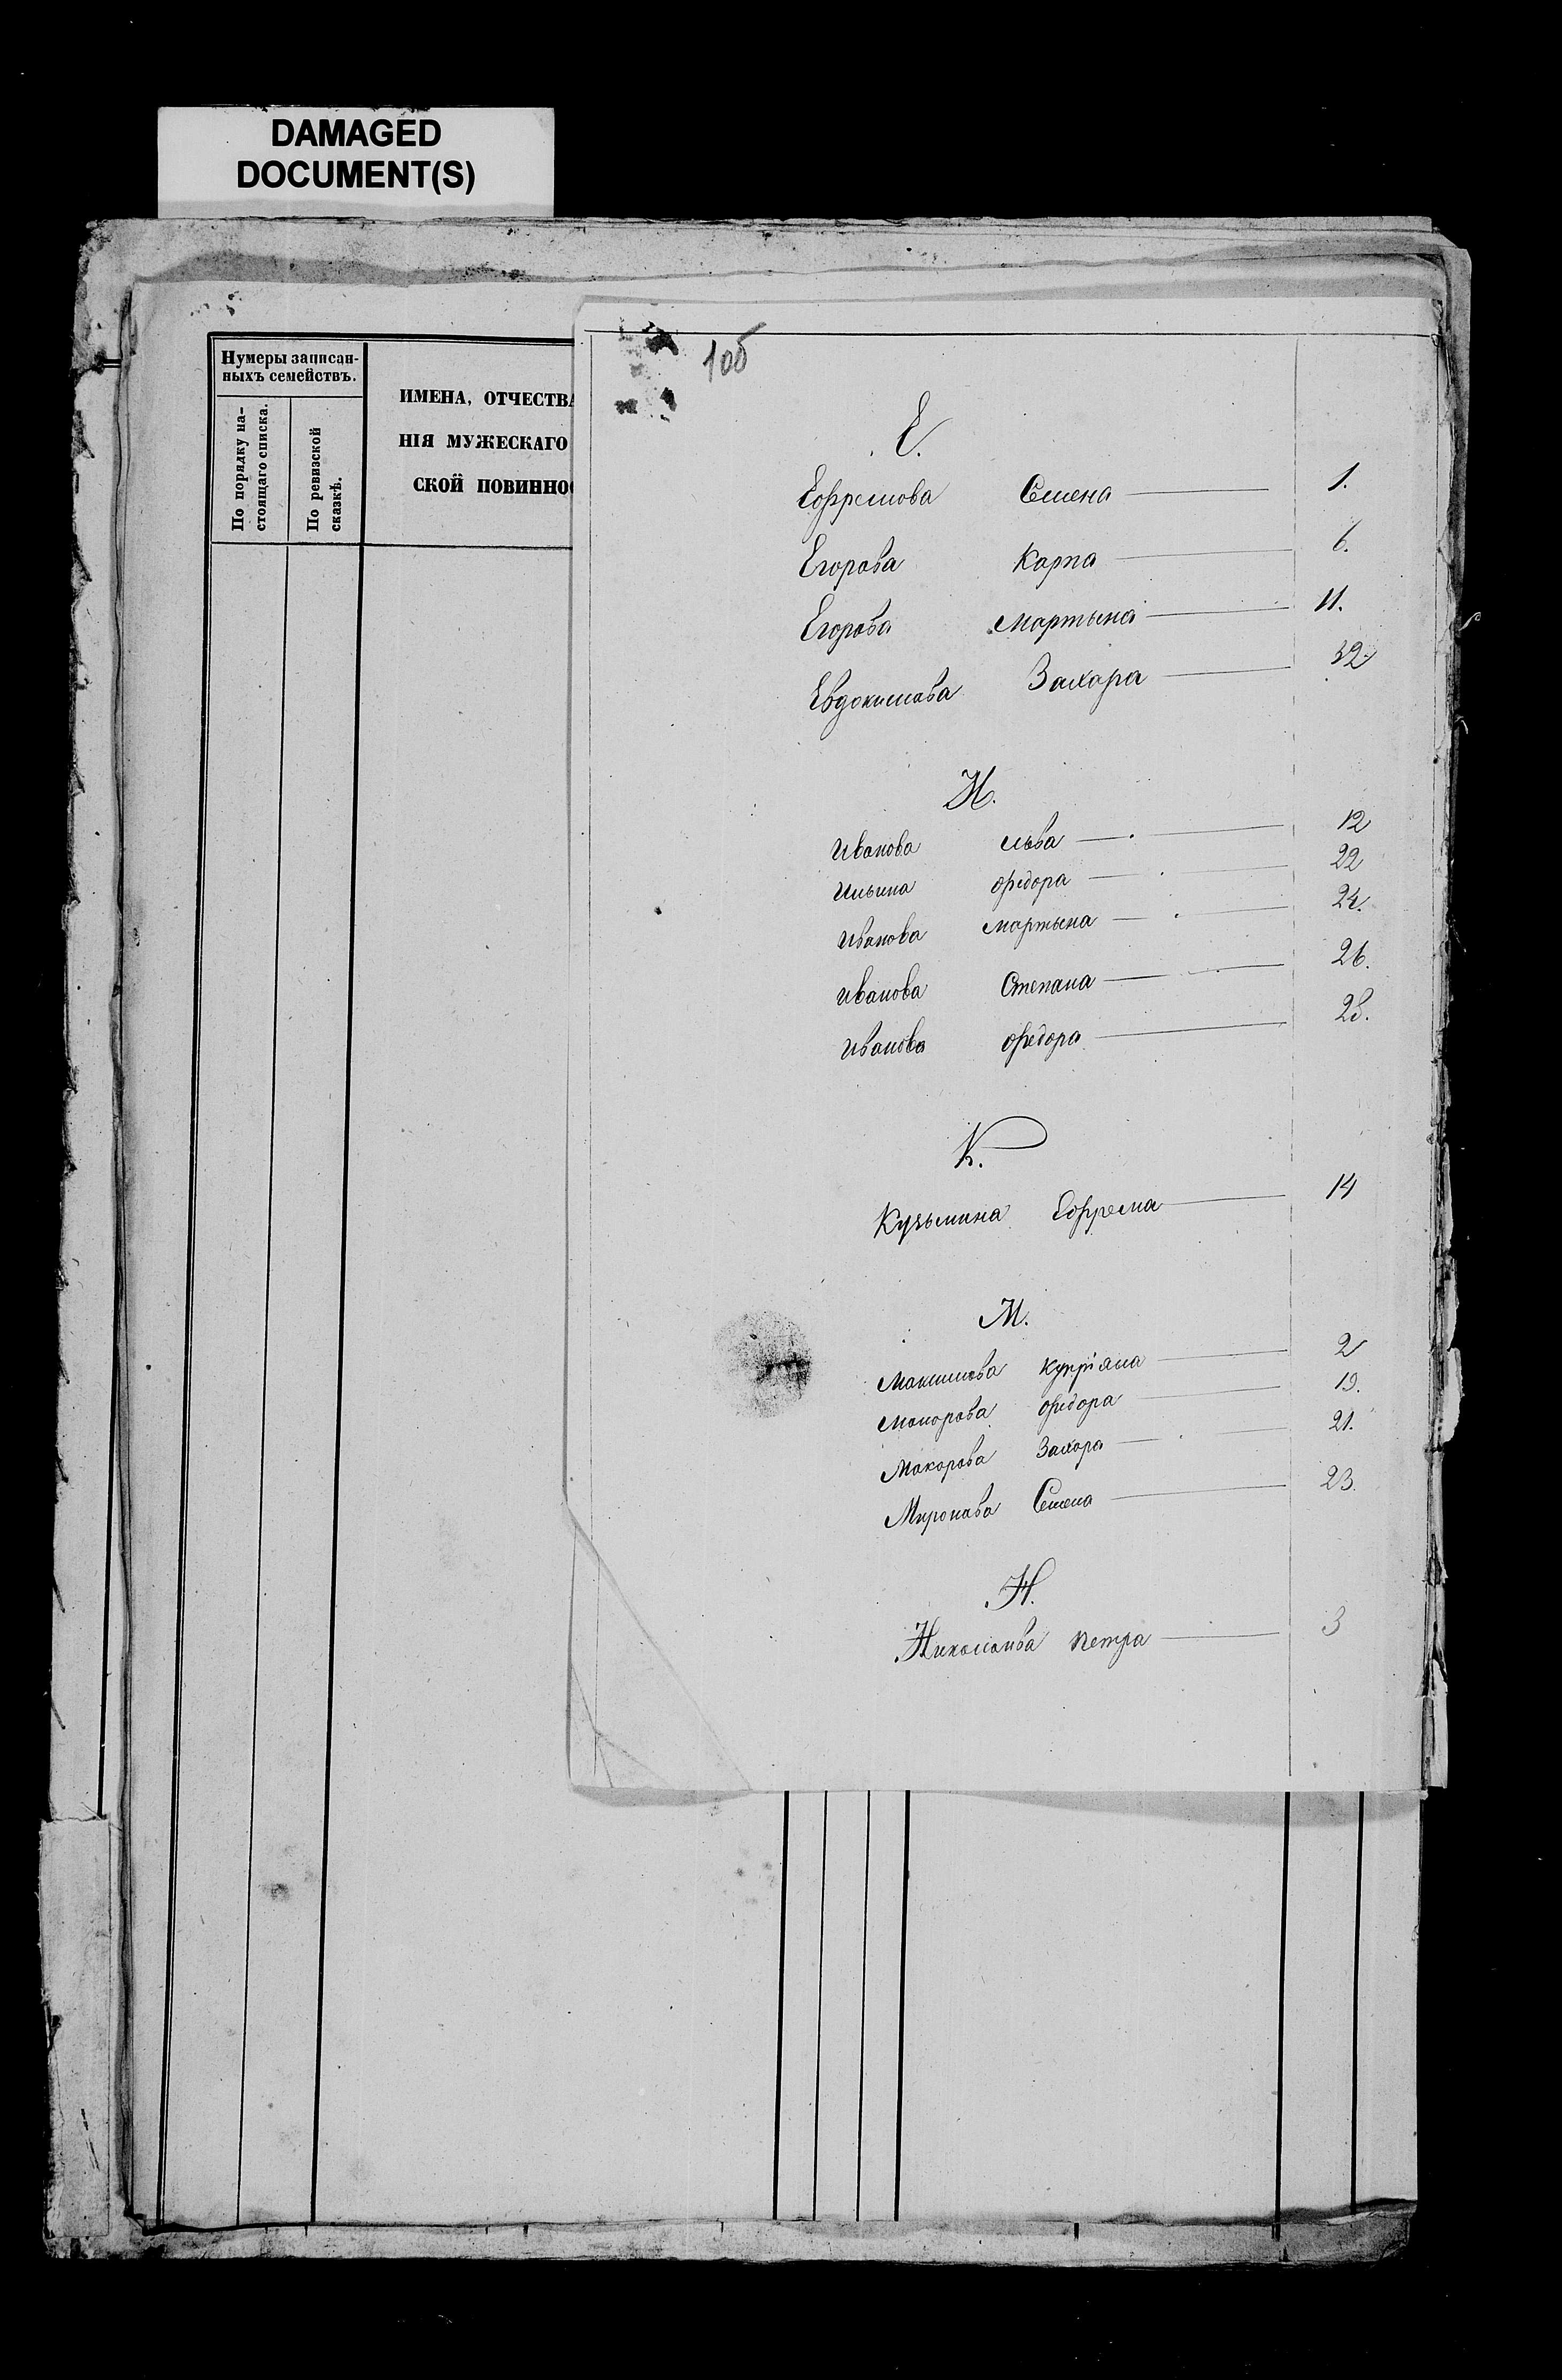 DAMAGED
DOCUMENT(S)
Нумеры записан-
ныхъ семействъ.
По порядку на-
стоящаго списка.
По ревизской
сказкѣ.
ИМЕНА, ОТЧЕСТВА
НІЯ МУЖЕСКАГО
СКОЙ ПОВИННО
Е.
Ефремова Семена 1.
Егорова Карпа 6.
Егорова Мартына 11.
Евдокимова Захара 32.
И.
Иванова Льва 12
Ильина Федора 22
Иванова Мартына 24.
Иванова Степана 26.
Иванова Федора 28.
К.
Кузьмина Ефрема 14
М.
Максимова Купріяна 2
Макарова Федора 19.
Макарова Захара 21.
Миронова Семена 23.
Н.
Николаева Петра 3